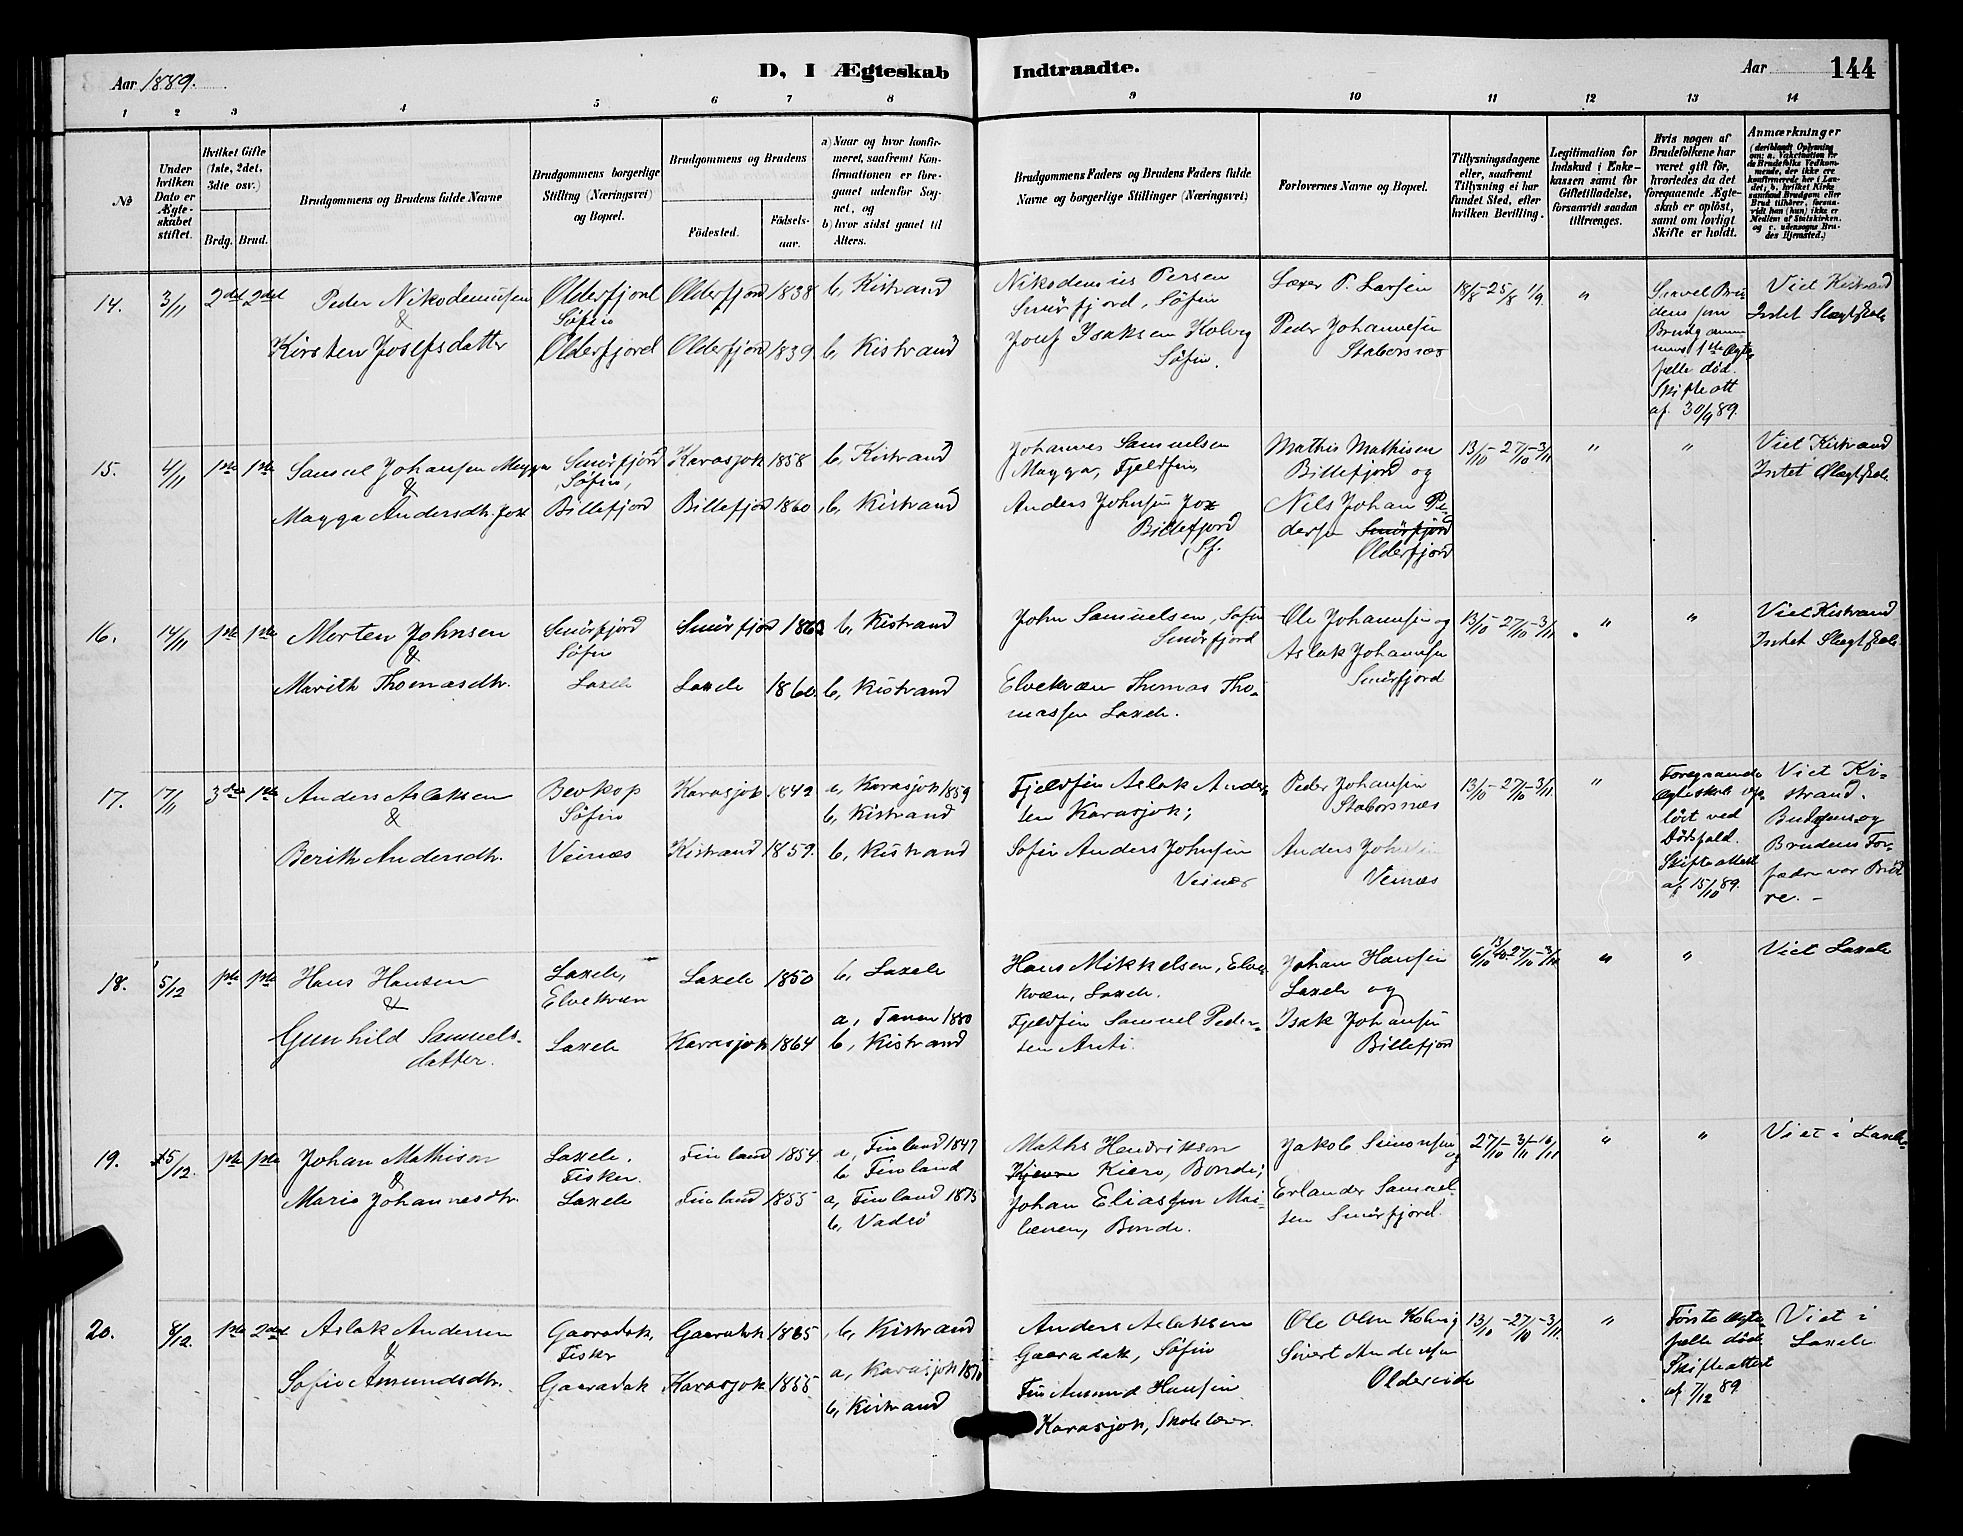 Aar 1889.
D, I Ægteskab Indtraadte.
Aar
144
1 2 3 4 5 6 7 8 9 10 11 12 13 14
No
Under hvilken Dato er Ægteskabet stiftet.
Hvilket Gifte (1ste, 2det, 3die osv.)
Brdg. Brud.
Brudgommens og Brudens fulde Navne
Brudgommens borgerlige Stilling (Næringsvei) og Bopæl.
Brudgommens og Brudens
Födested.
Födselsaar.
a) Naar og hvor konfirmeret, saafremt Konfirmationen er foregaaet udenfor Sognet, og
b) hvor sidst gaaet til Alters.
Brudgommens Faders og Brudens Faders fulde Navne og borgerlige Stillinger (Næringsvei)
Forlovernes Navne og Bopæl.
Tillysningsdagene eller, saafremt Tillysning ei har fundet Sted, efter hvilken Bevilling.
Legitimation for Indskud i Enkekassen samt for Giftetilladelse, forsaavidt saadan tiltrænges.
Hvis nogen af Brudefolkene har været gift før, hvorledes da det foregaaende Ægteskab er oplöst, samt om lovligt Skifte er holdt.
Anmærkninger
(deriblandt Oplysning om: a. Vakcination for de Brudefolks Vedkommende, der ikke ere konfirmerede her i Landet; b. hvilket Kirkesamfund Brudgom eller Brud tilhörer, forsaavidt han (hun) ikke er Medlem af Statskirken. og c. udensogns Brudes Hjemsted.)
14. 3/11 2det 2det
Peder Nikodemusen
&
Kirsten Josefsdatter
Olderfjord
Söfin
Olderfjord
Olderfjord 1838
Olderfjord 1839.
b, Kistrand
b, Kistrand
Nikodemus Persen
Smörfjord, Söfin
Josef Isaksen Kolvig
Söfin.
P. Larsen
Peder Johannesen
Stabersnæs
18/8-25/8 1/9
"
Saavel Bru
dens som
Brudgom
mens 1ste Ægte
fælle död.
Skifteatt
af 30/9 89.
Viet Kistrand
Intet Slægtskab
15. 4/11 1ste 1ste
Samuel Johansen Magga
&
Magga Andersdtr. Jox
Smörfjord
Söfin,
Billefjord
Karasjok 1858
Billefjord 1860
b, Kistrand
b, Kistrand
Johannes Samuelsen
Magga, Fjeldfin,
Anders Johnsen Jox
Billefjord
Sf.
Mathis Mathisen
Billefjord og
Nils Johan Pe-
dersen Smörfjord
Olderfjord
13/10-27/10-3/11
"
"
Viet Kistrand
Intet Slægtskab
16. 14/11 1ste 1ste
Morten Johnsen
&
Marith Thomasdtr.
Smörfjord
Söfin
Laxelv
Smörfjord
Laxelv 1860.
b, Kistrand
b, Kistrand
John Samuelsen, Söfin
Smörfjord
Elvekvæn Thomas Tho-
massen Laxelv.
Ole Johannesen og
Aslak Johannsen
Smörfjord
13/10-27/10-3/11
"
"
Viet Kistrand
Intet Slægtskab
17. 17/11 3die 1ste
Anders Aslaksen
&
Berith Andersdtr.
Bevkop
Söfin
Veinæs
Karasjok 1842
Kistrand 1859.
a, Karasjok 1859
b, Kistrand
b, Kistrand
Fjeldfin Aslak Ander-
sen Karasjok;
Söfin Anders Johnsen
Veinæs
Peder Johansen
Stabersnæs
Anders Johnsen
Veinæs
13/10-27/10-3/11
"
Foregaaende
Ægteskab op-
löst ved
Dödsfald.
Skifteattest
af 15/10 89.
Viet Ki-
strand.
Brudgoms og
Brudens For-
fædre var Bröd
re. -
18. 5/12 1ste 1ste
Hans Hansen
&
Gunhild Samuels-
datter.
Laxelv,
Elvekvæn
Laxelv
Laxelv 1850
Karasjok 1864
b, Laxelv
a, Tanen 1880
b, Kistrand
Hans Mikkelsen, Elve
kvæn, Laxelv.
Fjeldfin Samuel Peder-
sen Anti.
Johan Hansen
Laxelv og
Isak Johansen
Billefjord
6/10 13/10 27/10-3/11
"
"
Viet Laxelv
19. 5/12. 1ste 1ste
Johan Mathisen
&
Maria Johannesdtr.
Laxelv.
Fisker.
Laxelv
Finland 1854.
Finland 1855
a, Finland 1847
b Finland
a, Finland 1873
b, Vadsö
Maths Hendriksen
Kiero, Bonde;
Johan Eliassen Mai-
lænen, Bonde.
Jakob Simonsen
og
Erlander Samuel-
sen Smörfjord.
27/10-3/11-10/11
"
"
Viet i Laxelv
20. 8/12. 1ste 2det
Aslak Andersen
&
Sofie Amundsdtr.
Gaaradak,
Fisker
Gaaradak
Gaaradak 1865
Karasjok 1855
b, Kistrand
a, Karasjok
b, Kistrand
Anders Aslaksen
Gaaradak, Söfin
Fin Amund Hansen
Karasjok, Skolelærer.
Ole Olsen Kolvig
Sivert Andersen
Oldervik
13/10-27/10-3/11
"
Förste Ægte
fælle död.
Skifteattest
af 7/12 89.
Viet i
Laxelv